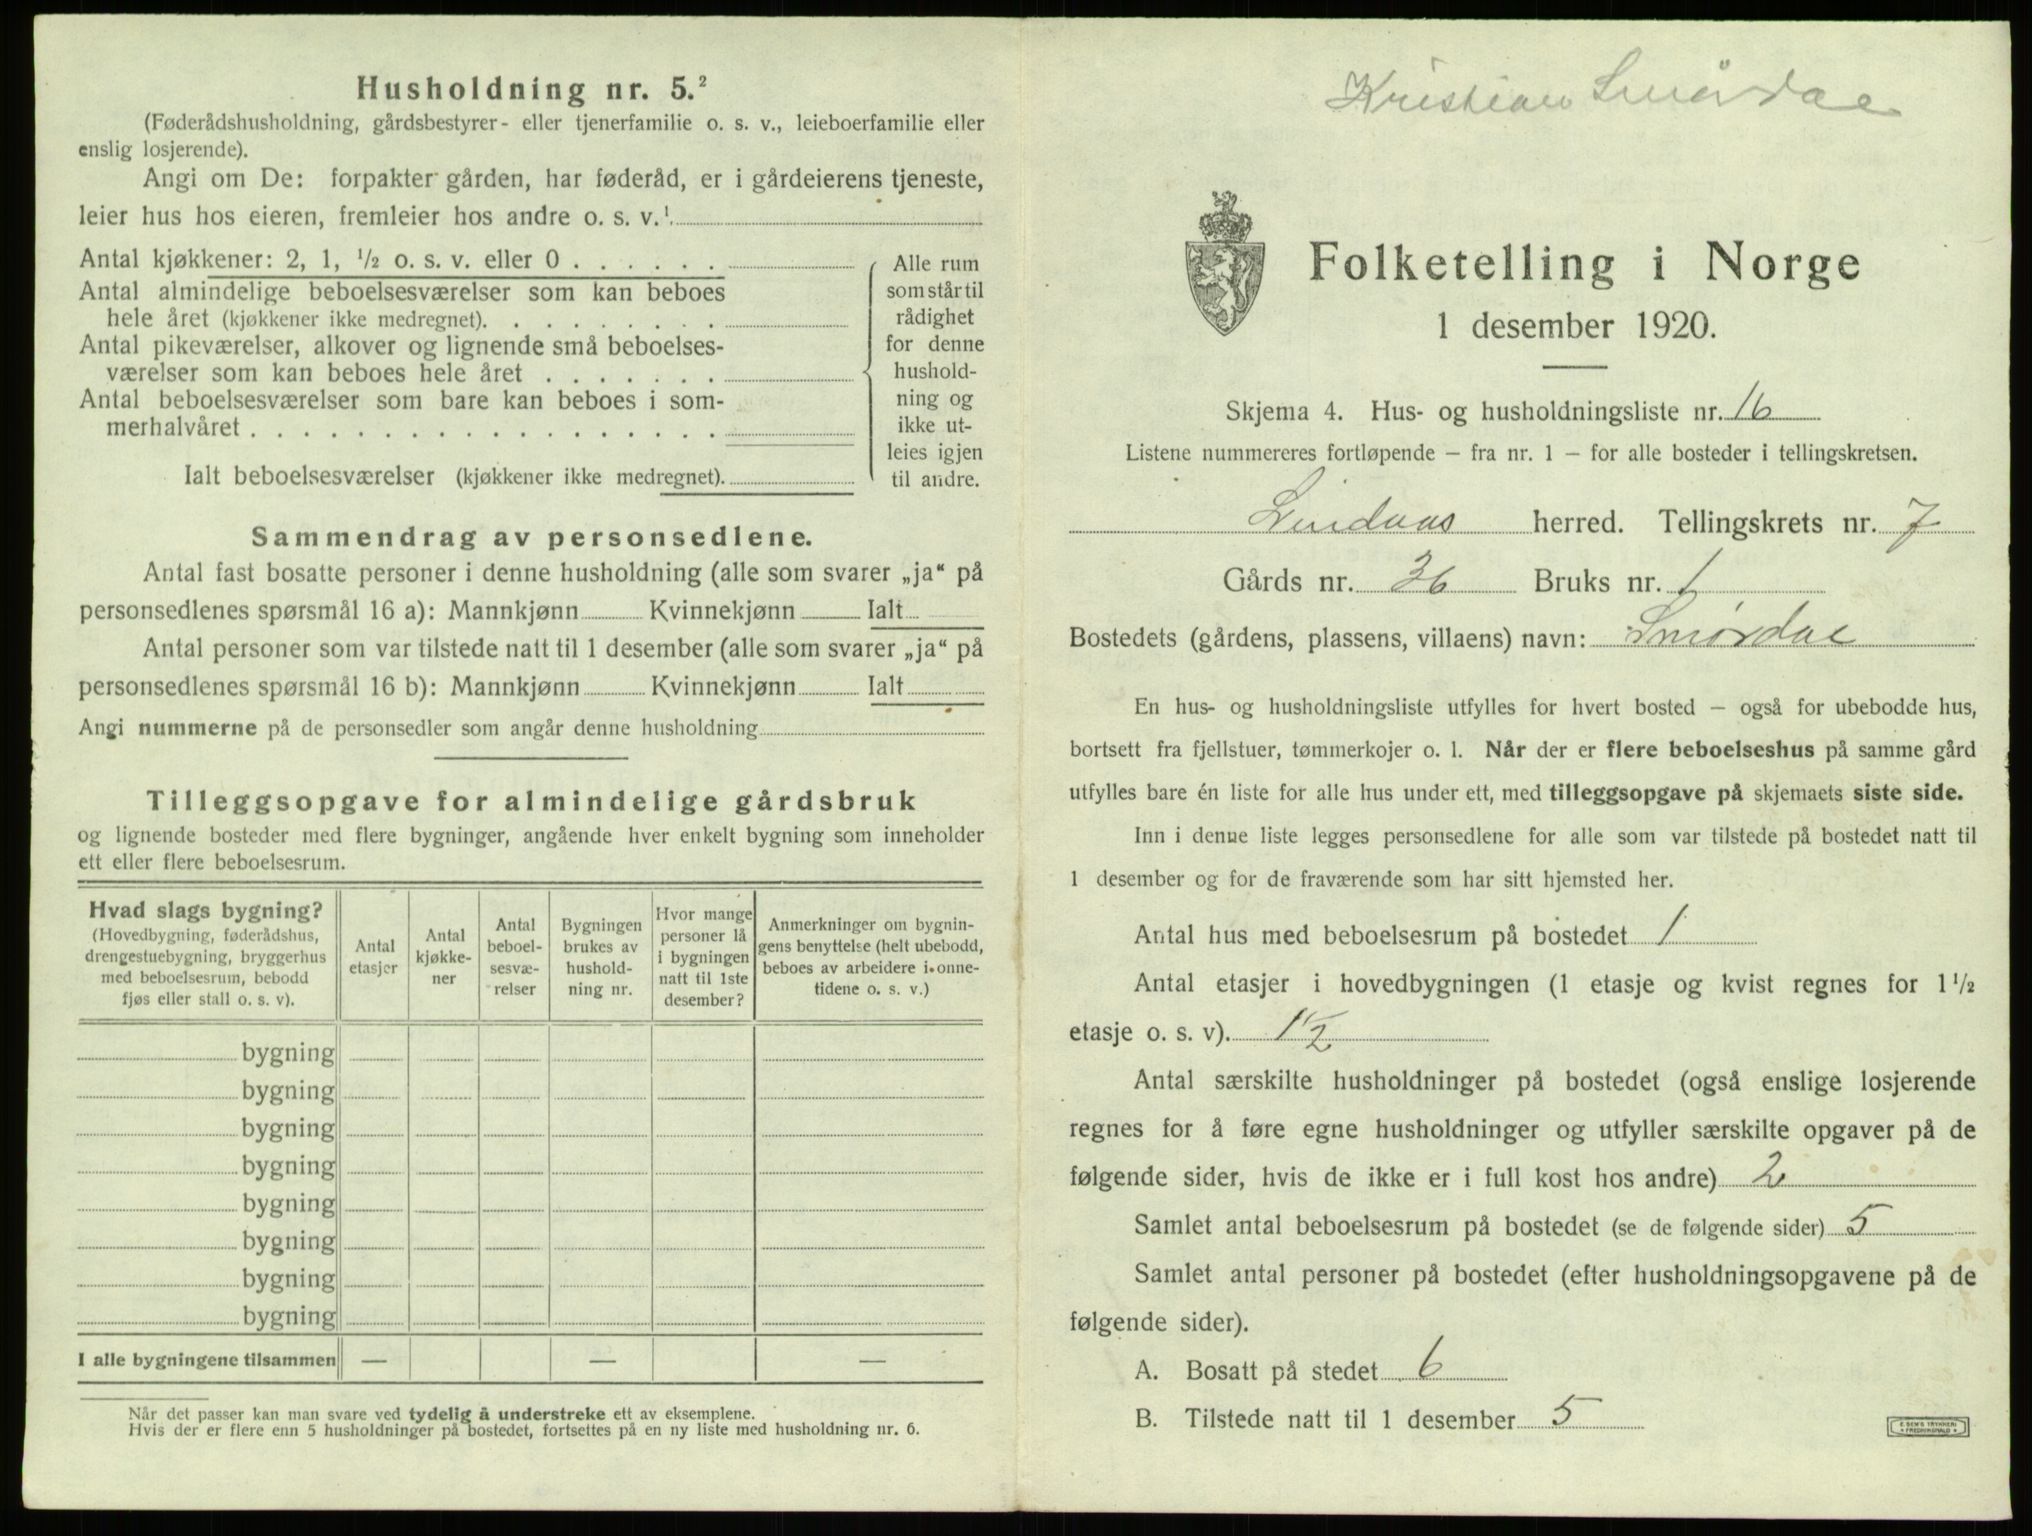 Husholdning nr. 5.²
(Føderådshusholdning, gårdsbestyrer- eller tjenerfamilie o. s. v., leieboerfamilie eller
enslig losjerende).
Angi om De: forpakter gården, har føderåd, er i gårdeierens tjeneste,
leier hus hos eieren, fremleier hos andre o. s. v.¹
Antal kjøkkener: 2, 1, ½ o. s. v. eller 0 . . . . . .
Antal almindelige beboelsesværelser som kan beboes
hele året (kjøkkener ikke medregnet). . . . . . . . .
Antal pikeværelser, alkover og lignende små beboelses-
værelser som kan beboes hele året . . . . . . .
Antal beboelsesværelser som bare kan beboes i som-
merhalvåret . . . . . . . . . . . . . . . . . .
Ialt beboelsesværelser (kjøkkener ikke medregnet).
Alle rum
som står til
rådighet
for denne
hushold-
ning og
ikke ut-
leies igjen
til andre.
Sammendrag av personsedlene.
Antal fast bosatte personer i denne husholdning (alle som svarer „ja“ på
personsedlenes spørsmål 16 a): Mannkjønn Kvinnekjønn Ialt
Antal personer som var tilstede natt til 1 desember (alle som svarer „ja“ på
personsedlenes spørsmål 16 b): Mannkjønn Kvinnekjønn Ialt
Angi nummerne på de personsedler som angår denne husholdning
Tilleggsopgave for almindelige gårdsbruk
og lignende bosteder med flere bygninger, angående hver enkelt bygning som inneholder
ett eller flere beboelsesrum.
Hvad slags bygning?
(Hovedbygning, føderådshus,
drengestuebygning, bryggerhus
med beboelsesrum, bebodd
fjøs eller stall o. s. v).
Antal
etasjer
Antal
kjøkke-
ner
Antal
beboel-
sesvæ-
relser
Bygningen
brukes av
hushold-
ning nr.
Hvor mange
personer lå
i bygningen
natt til 1ste
desember?
Anmerkninger om bygnin-
gens benyttelse (helt ubebodd,
beboes av arbeidere i onne-
tidene o. s. v.)
bygning
bygning
bygning
bygning
bygning
bygning
bygning
bygning
I alle bygningene tilsammen — — —
Når det passer kan man svare ved tydelig å understreke ett av eksemplene.
Hvis der er flere enn 5 husholdninger på bostedet, fortsettes på en ny liste med husholdning nr. 6.
Kristian Smørdal
Folketelling i Norge
1 desember 1920.
Skjema 4. Hus- og husholdningsliste nr. 16
Listene nummereres fortløpende – fra nr. 1 – for alle bosteder i tellingskretsen.
Lindaas herred. Tellingskrets nr. 7
Gårds nr. 36 Bruks nr. 1
Bostedets (gårdens, plassens, villaens) navn: Smørdal
En hus- og husholdningsliste utfylles for hvert bosted – også for ubebodde hus,
bortsett fra fjellstuer, tømmerkojer o. l. Når der er flere beboelseshus på samme gård
utfylles bare én liste for alle hus under ett, med tilleggsopgave på skjemaets siste side.
Inn i denne liste legges personsedlene for alle som var tilstede på bostedet natt til
1 desember og for de fraværende som har sitt hjemsted her.
Antal hus med beboelsesrum på bostedet 1
Antal etasjer i hovedbygningen (1 etasje og kvist regnes for 1½
etasje o. s. v). 1½
Antal særskilte husholdninger på bostedet (også enslige losjerende
regnes for å føre egne husholdninger og utfyller særskilte opgaver på de
følgende sider, hvis de ikke er i full kost hos andre) 2
Samlet antal beboelsesrum på bostedet (se de følgende sider) 5
Samlet antal personer på bostedet (efter husholdningsopgavene på de
følgende sider).
A. Bosatt på stedet 6
B. Tilstede natt til 1 desember 5
E. SEM'S TRYKKERI
* FREDRIKSHALD *